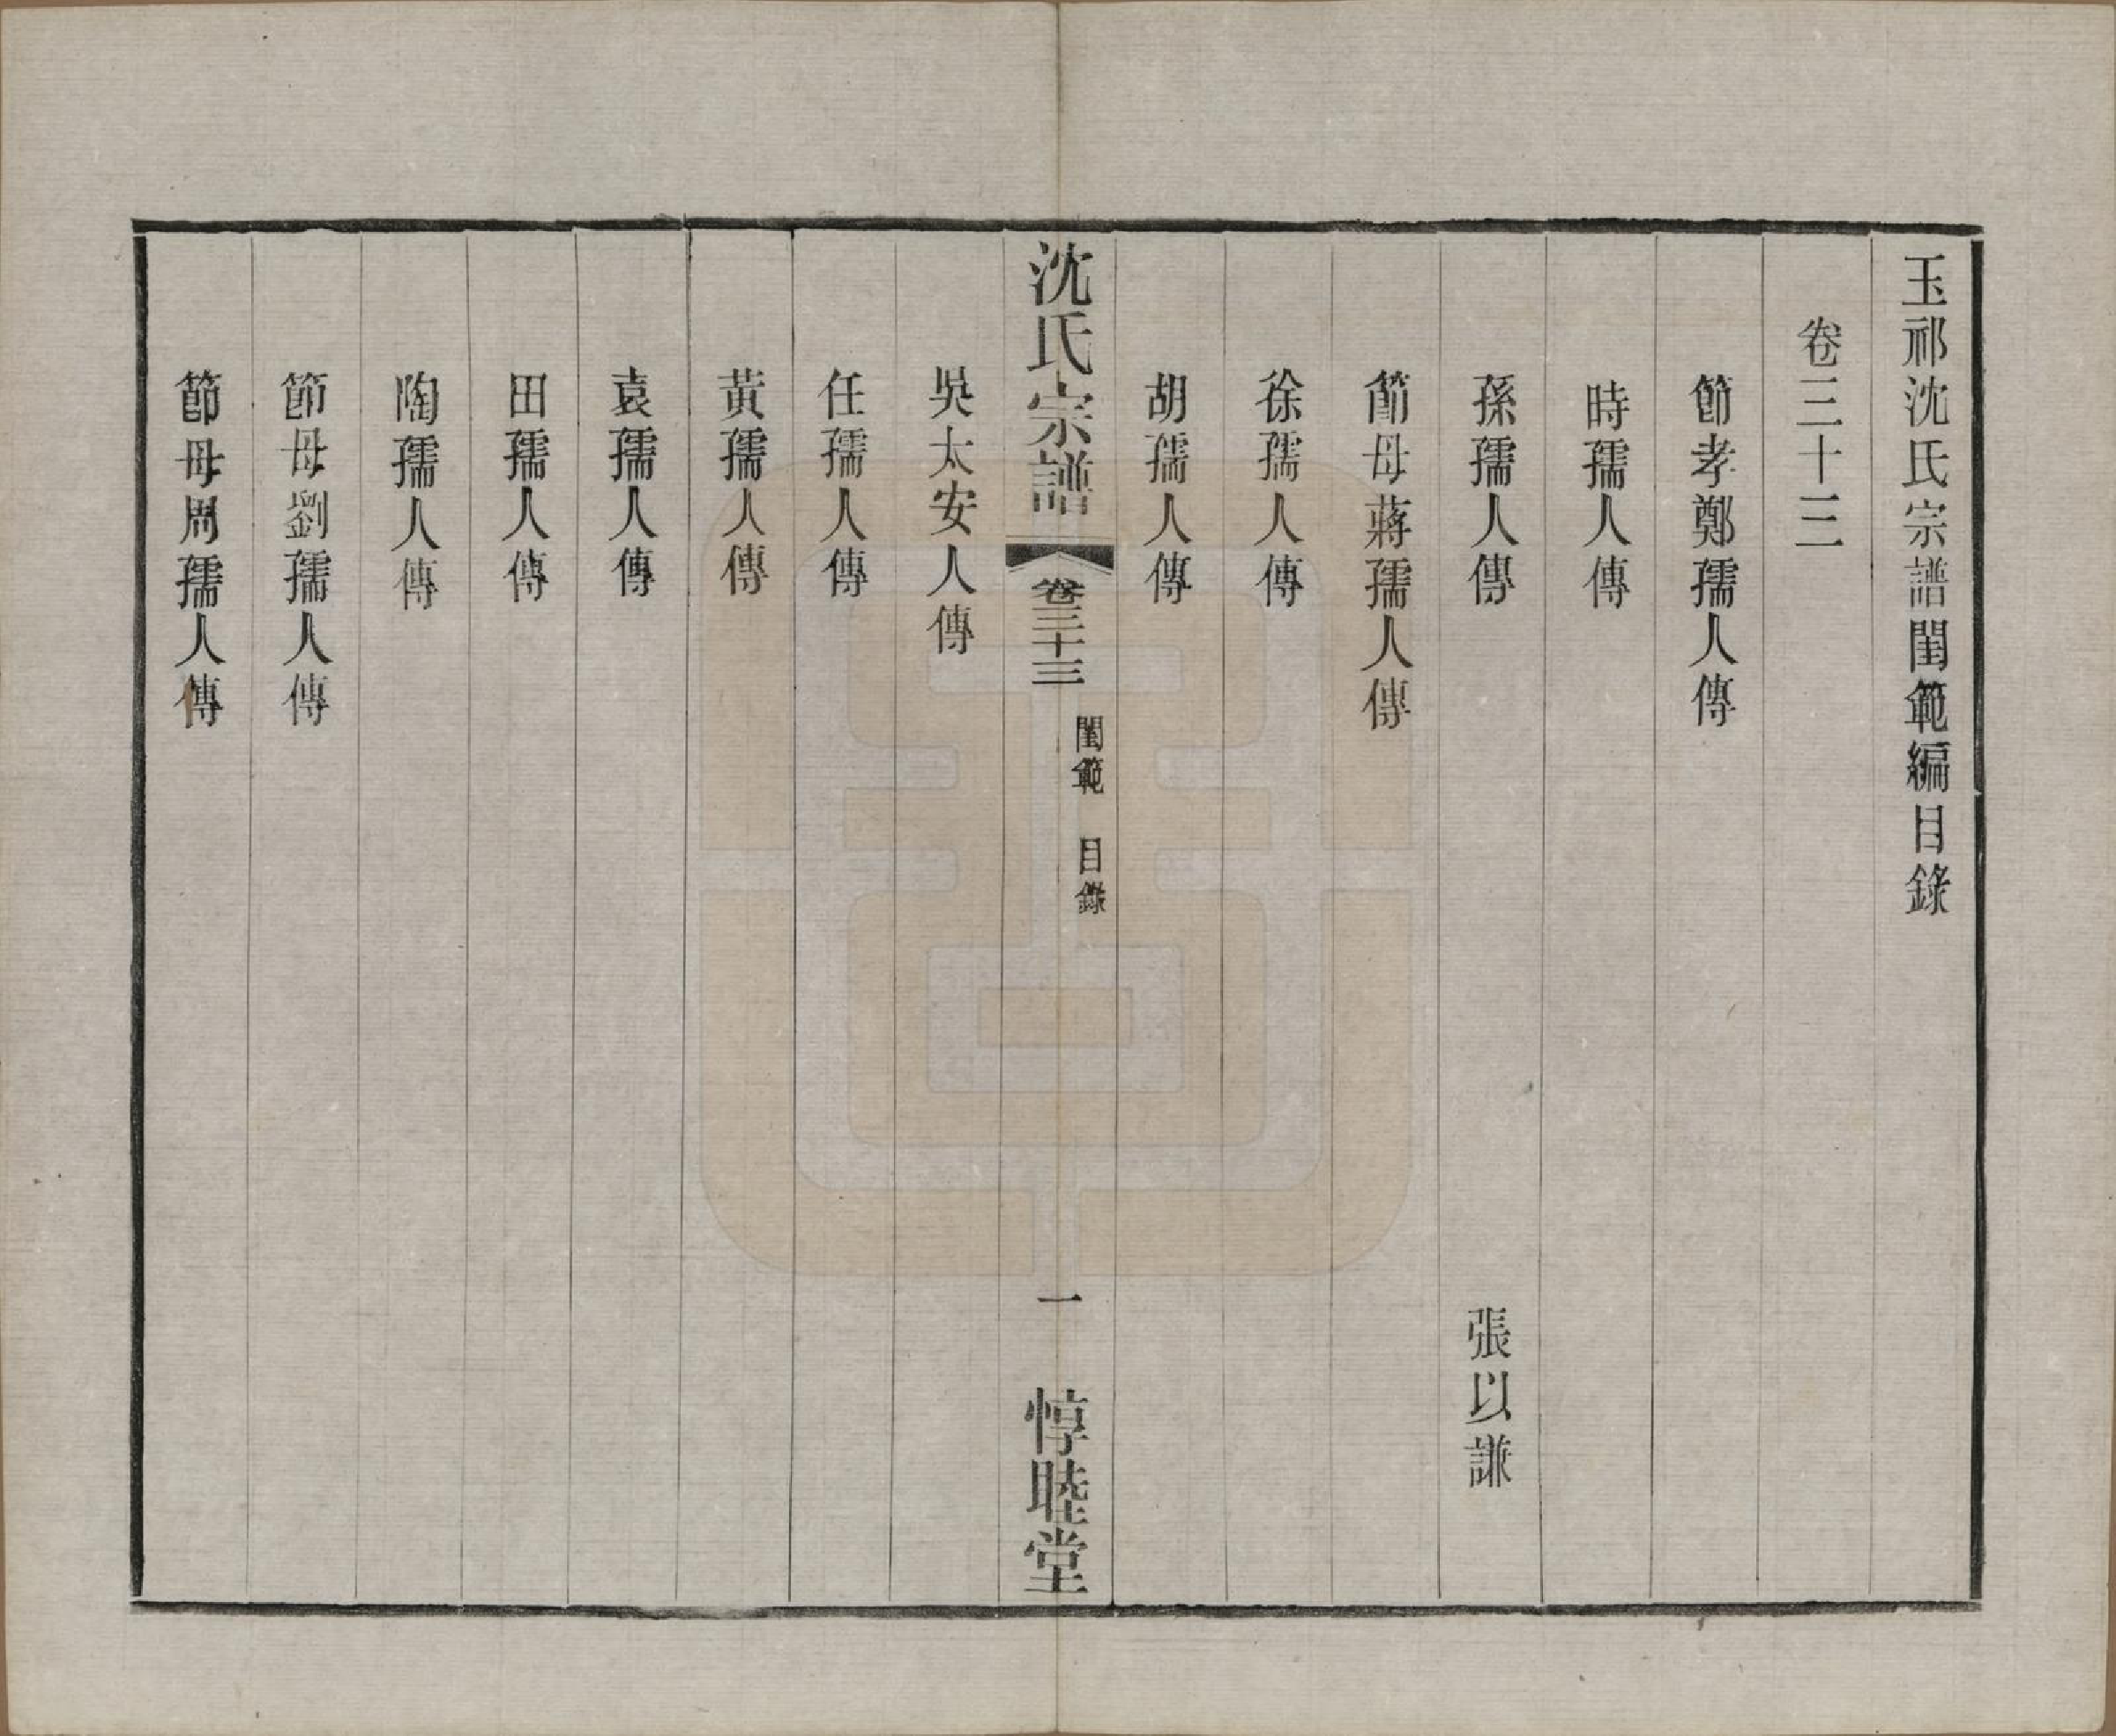 玉祁沈氏宗譜閨範編目錄
卷三十三
節孝鄭孺人傳
時孺人傳
孫孺人傳 張以謙
節母蔣孺人傳
徐孺人傳
胡孺人傳
沈氏宗譜 卷三十三 閨範 目錄 一 惇睦堂
吳太安人傳
任孺人傳
黃孺人傳
袁孺人傳
田孺人傳
陶孺人傳
節母劉孺人傳
節母周孺人傳